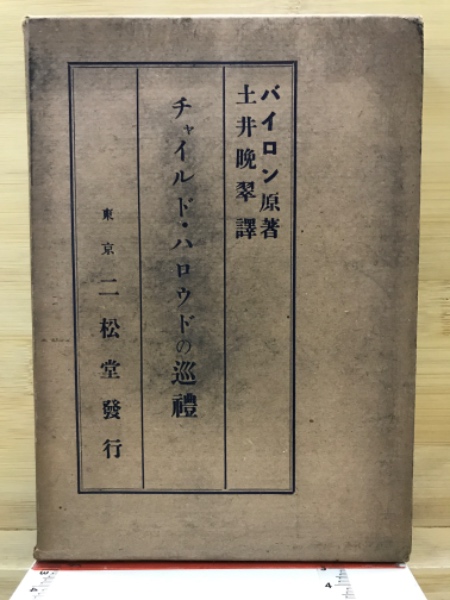 バイロン原著
土井晩翠譯
チャイルド・ハロウドの巡禮
東京 二松堂發行
3
4